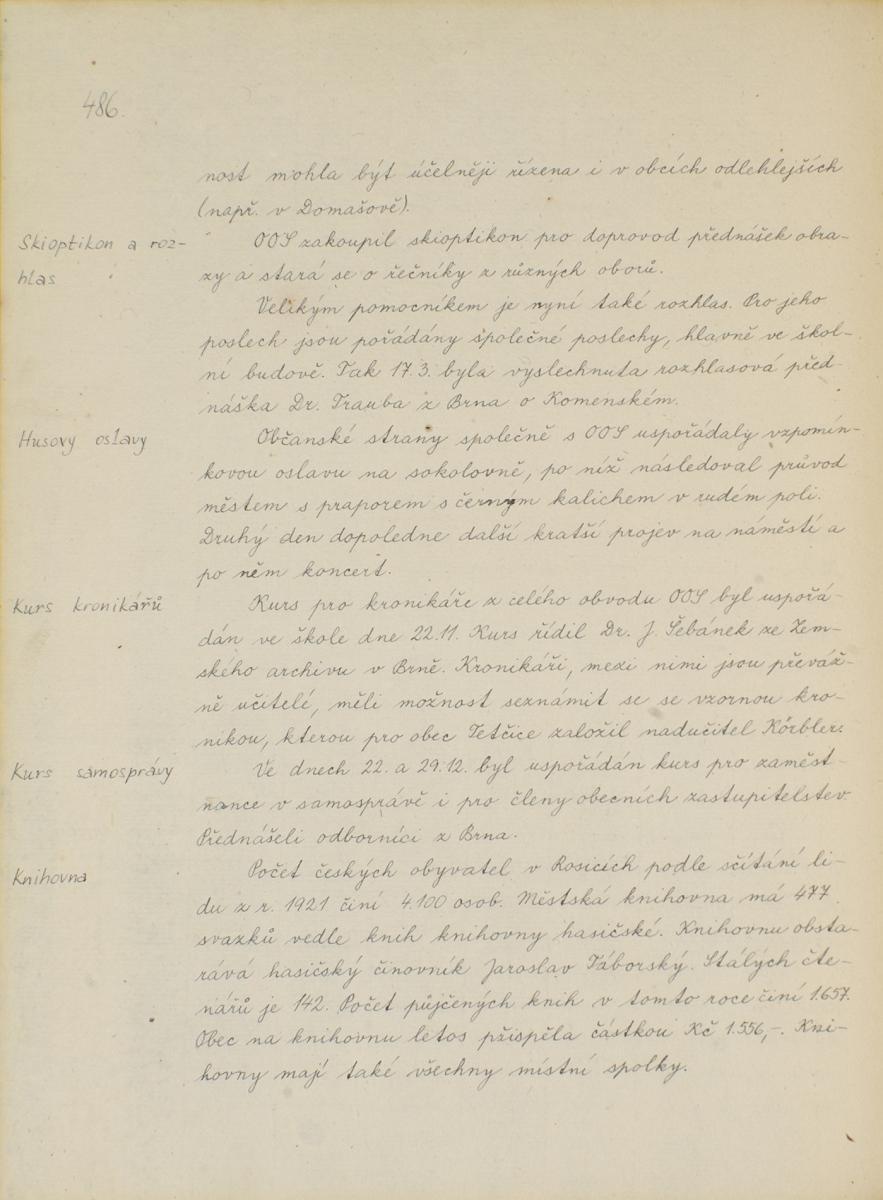 486.
nost mohla být účelněji řízena i v obcích odlehlejších
(např. v Domašově).
Skioptikon a roz-
hlas
OOS zakoupil skioptikon pro doprovod přednášek obra-
zy a stará se o řečníky z různých oborů.
Velikým pomocníkem je nyní také rozhlas. Pro jeho
poslech jsou pořádány společné poslechy, hlavně ve škol-
ní budově. Tak 17.3. byla vyslechnuta rozhlasová před-
náška Dr. Trauba z Brna o Komenském.
Husovy oslavy
Občanské strany společně s OOS uspořádaly vzpomín-
kovou oslavu na sokolovně, po níž následoval průvod
městem s praporem s černým kalichem v rudém poli.
Druhý den dopoledne další kratší projev na náměstí a
po něm koncert.
Kurs kronikářů
Kurs pro kronikáře z celého obvodu OOS byl uspořá-
dán ve škole dne 22.11. Kurs řídil Dr. J. Šebánek ze Zem-
ského archivu v Brně. Kronikáři, mezi nimi jsou převáž-
ně učitelé, měli možnost seznámit se se vzornou kro-
nikou, kterou pro obec Tetčice založil nadučitel Körbler.
Kurs samosprávy
Ve dnech 22. a 29.12. byl uspořádán kurs pro zaměst-
nance v samosprávě i pro členy obecních zastupitelstev.
Přednášeli odborníci z Brna.
Knihovna
Počet českých obyvatel v Rosicích podle sčítání li-
du z r. 1921 činí 4.100 osob. Městská knihovna má 477
svazků vedle knih knihovny hasičské. Knihovnu obsta-
rává hasičský činovník Jaroslav Táborský. Stálých čte-
nářů je 142. Počet půjčených knih v tomto roce činí 1.657.
Obec na knihovnu letos přispěla částkou Kč 1.556,-. Kni-
hovny mají také všechny místní spolky.